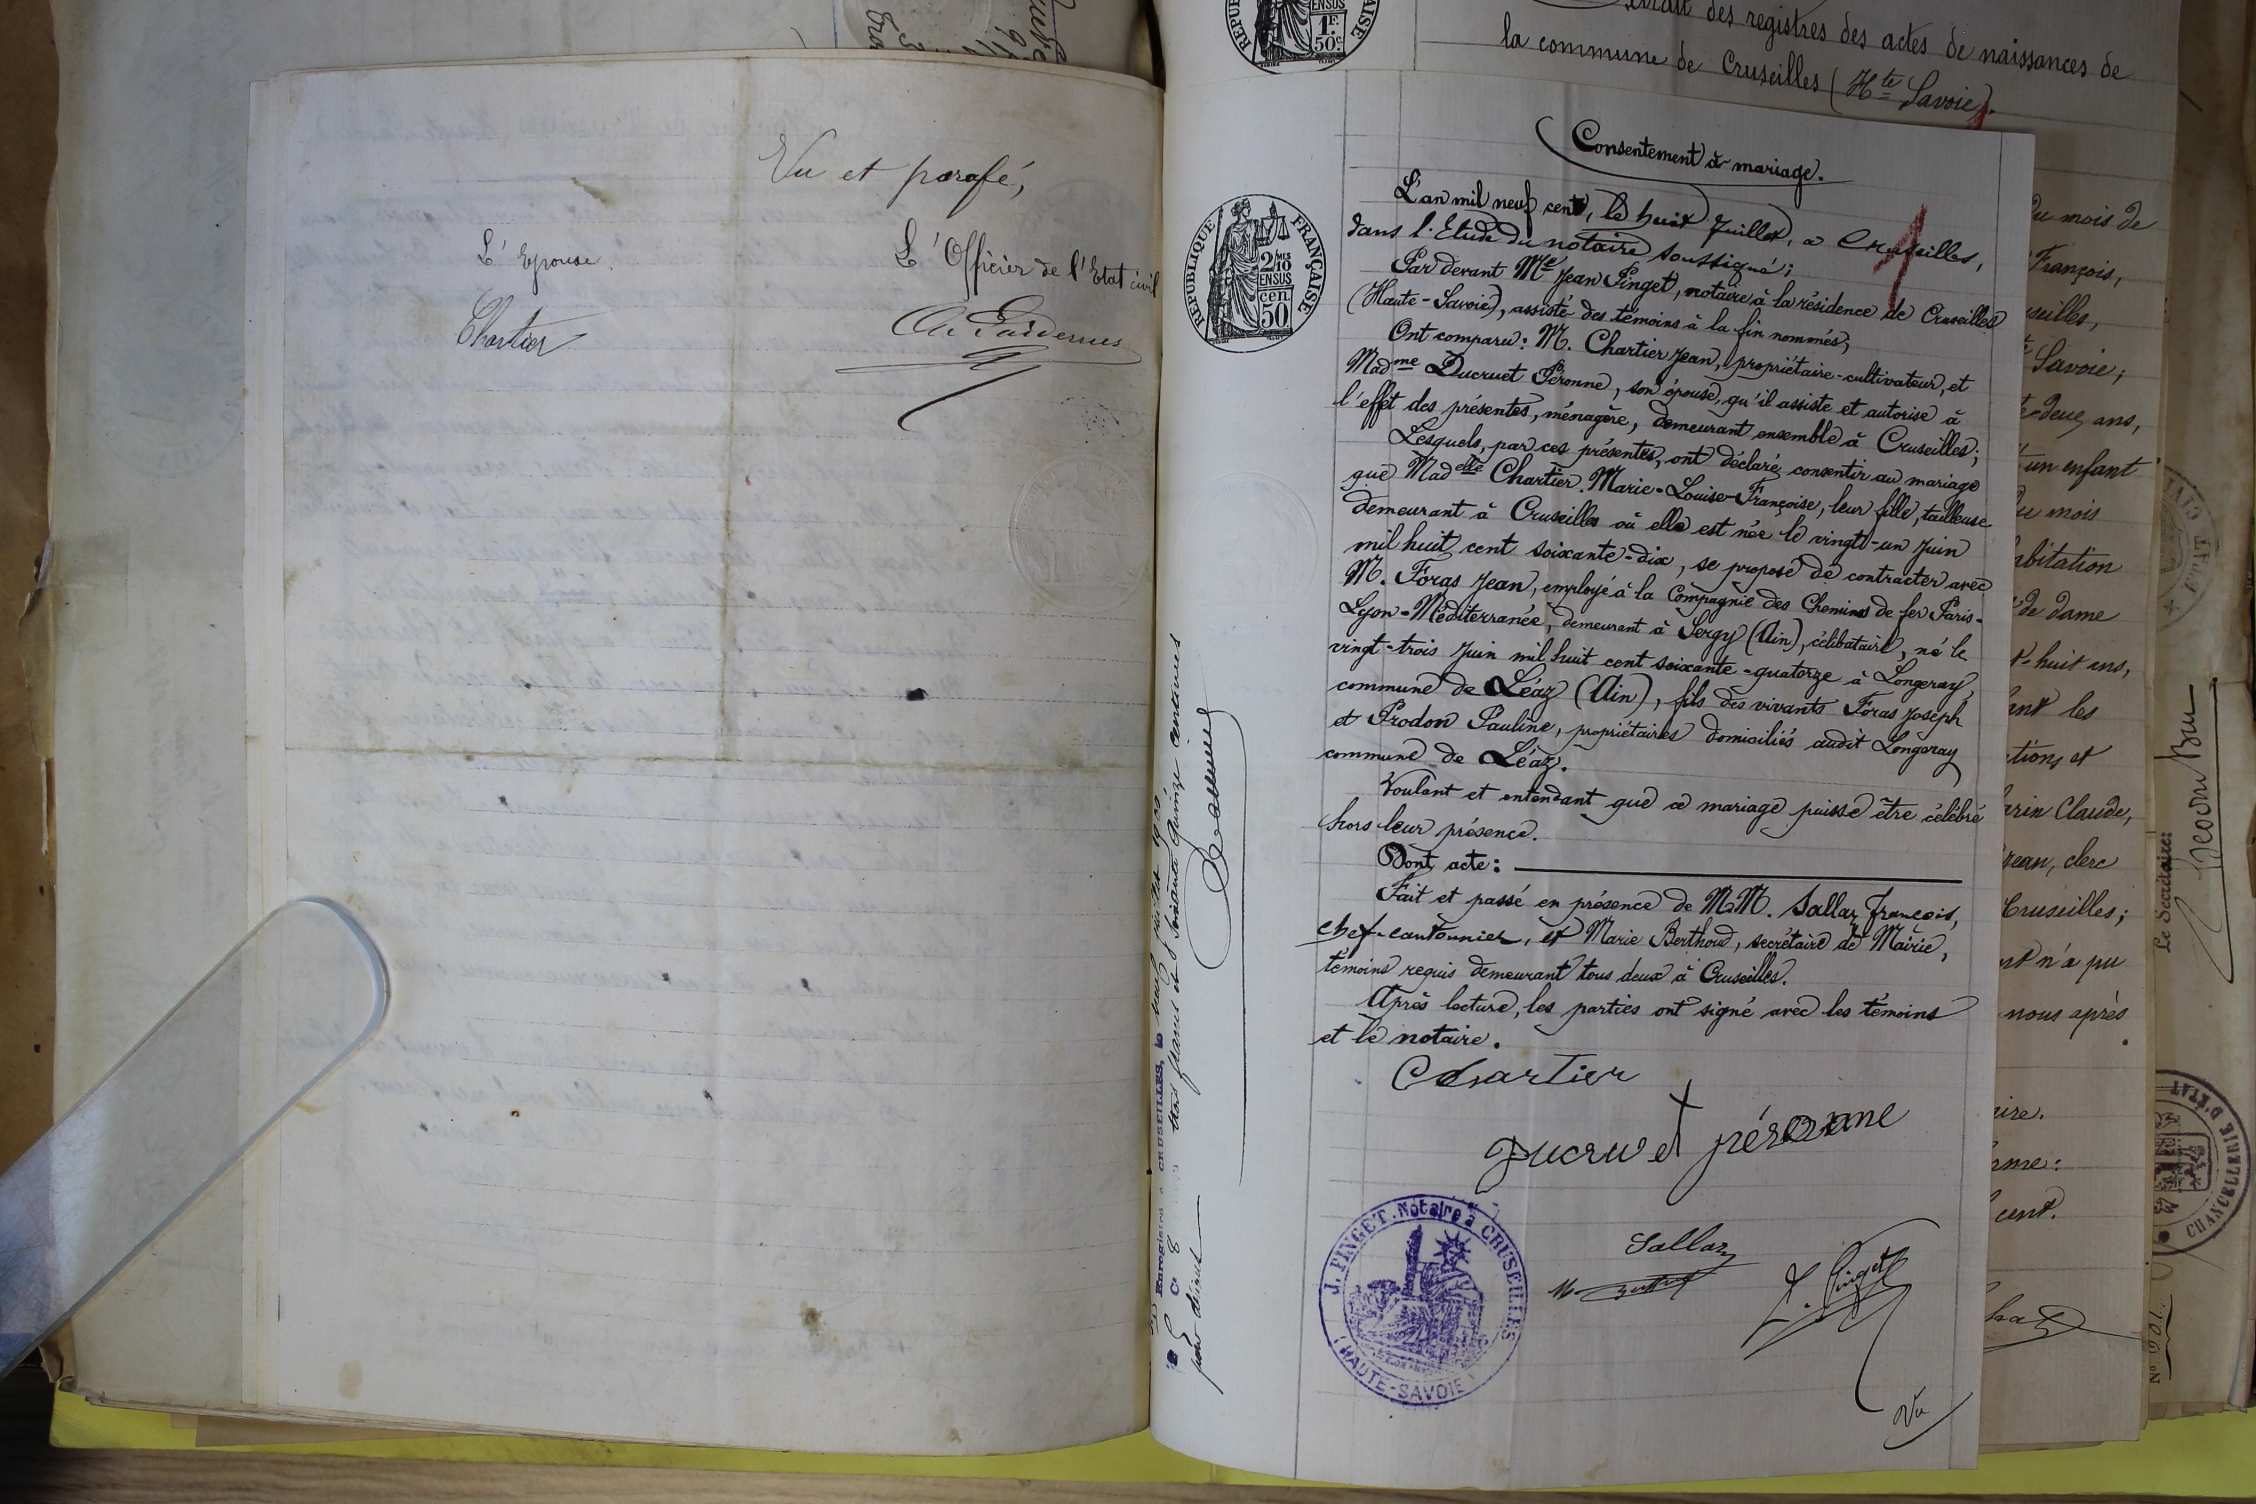 Vu et parafé,
L'Epouse.
L'Officier de l'Etat civil
Chartier
extrait des registres des actes de naissances de
la commune de Cruseilles (Hte Savoie).
RÉPUBLIQUE FRANÇAISE
1F. 50c
RÉPUBLIQUE FRANÇAISE
2/10 EN SUS
50 cen
Consentement à mariage.
L'an mil neuf cent, le huit Juillet, à Cruseilles,
dans l'Etude du notaire soussigné;
Par devant Me Jean Pinget, notaire à la résidence de Cruseilles
(Haute-Savoie), assisté des témoins à la fin nommés;
Ont comparu: M. Chartier Jean, propriétaire-cultivateur, et
Madme Ducruet Péronne, son épouse, qu'il assiste et autorise à
l'effet des présentes, ménagère, demeurant ensemble à Cruseilles;
Lesquels, par ces présentes, ont déclaré consentir au mariage
que Madelle Chartier Marie-Louise-Françoise, leur fille, tailleuse
demeurant à Cruseilles où elle est née le vingt-un Juin
mil huit cent soixante-dix, se propose de contracter avec
M. Foras Jean, employé à la Compagnie des Chemins de fer Paris-
Lyon-Méditerranée, demeurant à Sergy (Ain), célibataire, né le
vingt-trois Juin mil huit cent soixante-quatorze à Longeray,
commune de Léaz (Ain), fils des vivants Foras Joseph
et Prodon Pauline, propriétaires domiciliés audit Longeray
commune de Léaz.
Voulant et entendant que ce mariage puisse être célébré
hors leur présence.
Dont acte:
Fait et passé en présence de M.M. Sallaz François,
chef-cantonnier, et Marie Berthoud, secrétaire de Mairie,
témoins requis demeurant tous deux à Cruseilles.
Après lecture, les parties ont signé avec les témoins
et le notaire.
Chartier
Ducruet péronne
Sallaz
J. Pinget
Vu
J. PINGET. Notaire à CRUSEILLES
(HAUTE-SAVOIE)
Enregistré à CRUSEILLES, le neuf juillet 1900
trois francs et soixante quinze centimes
du mois de
François,
Savoie;
deux ans,
un enfant
mois
de dame
huit ans,
les
et
Claude,
Jean, clerc
Cruseilles;
n'a pu
nous après
Le Secrétaire:
ETAT CIVIL
CHANCELLERIE D'ÉTAT
No 901